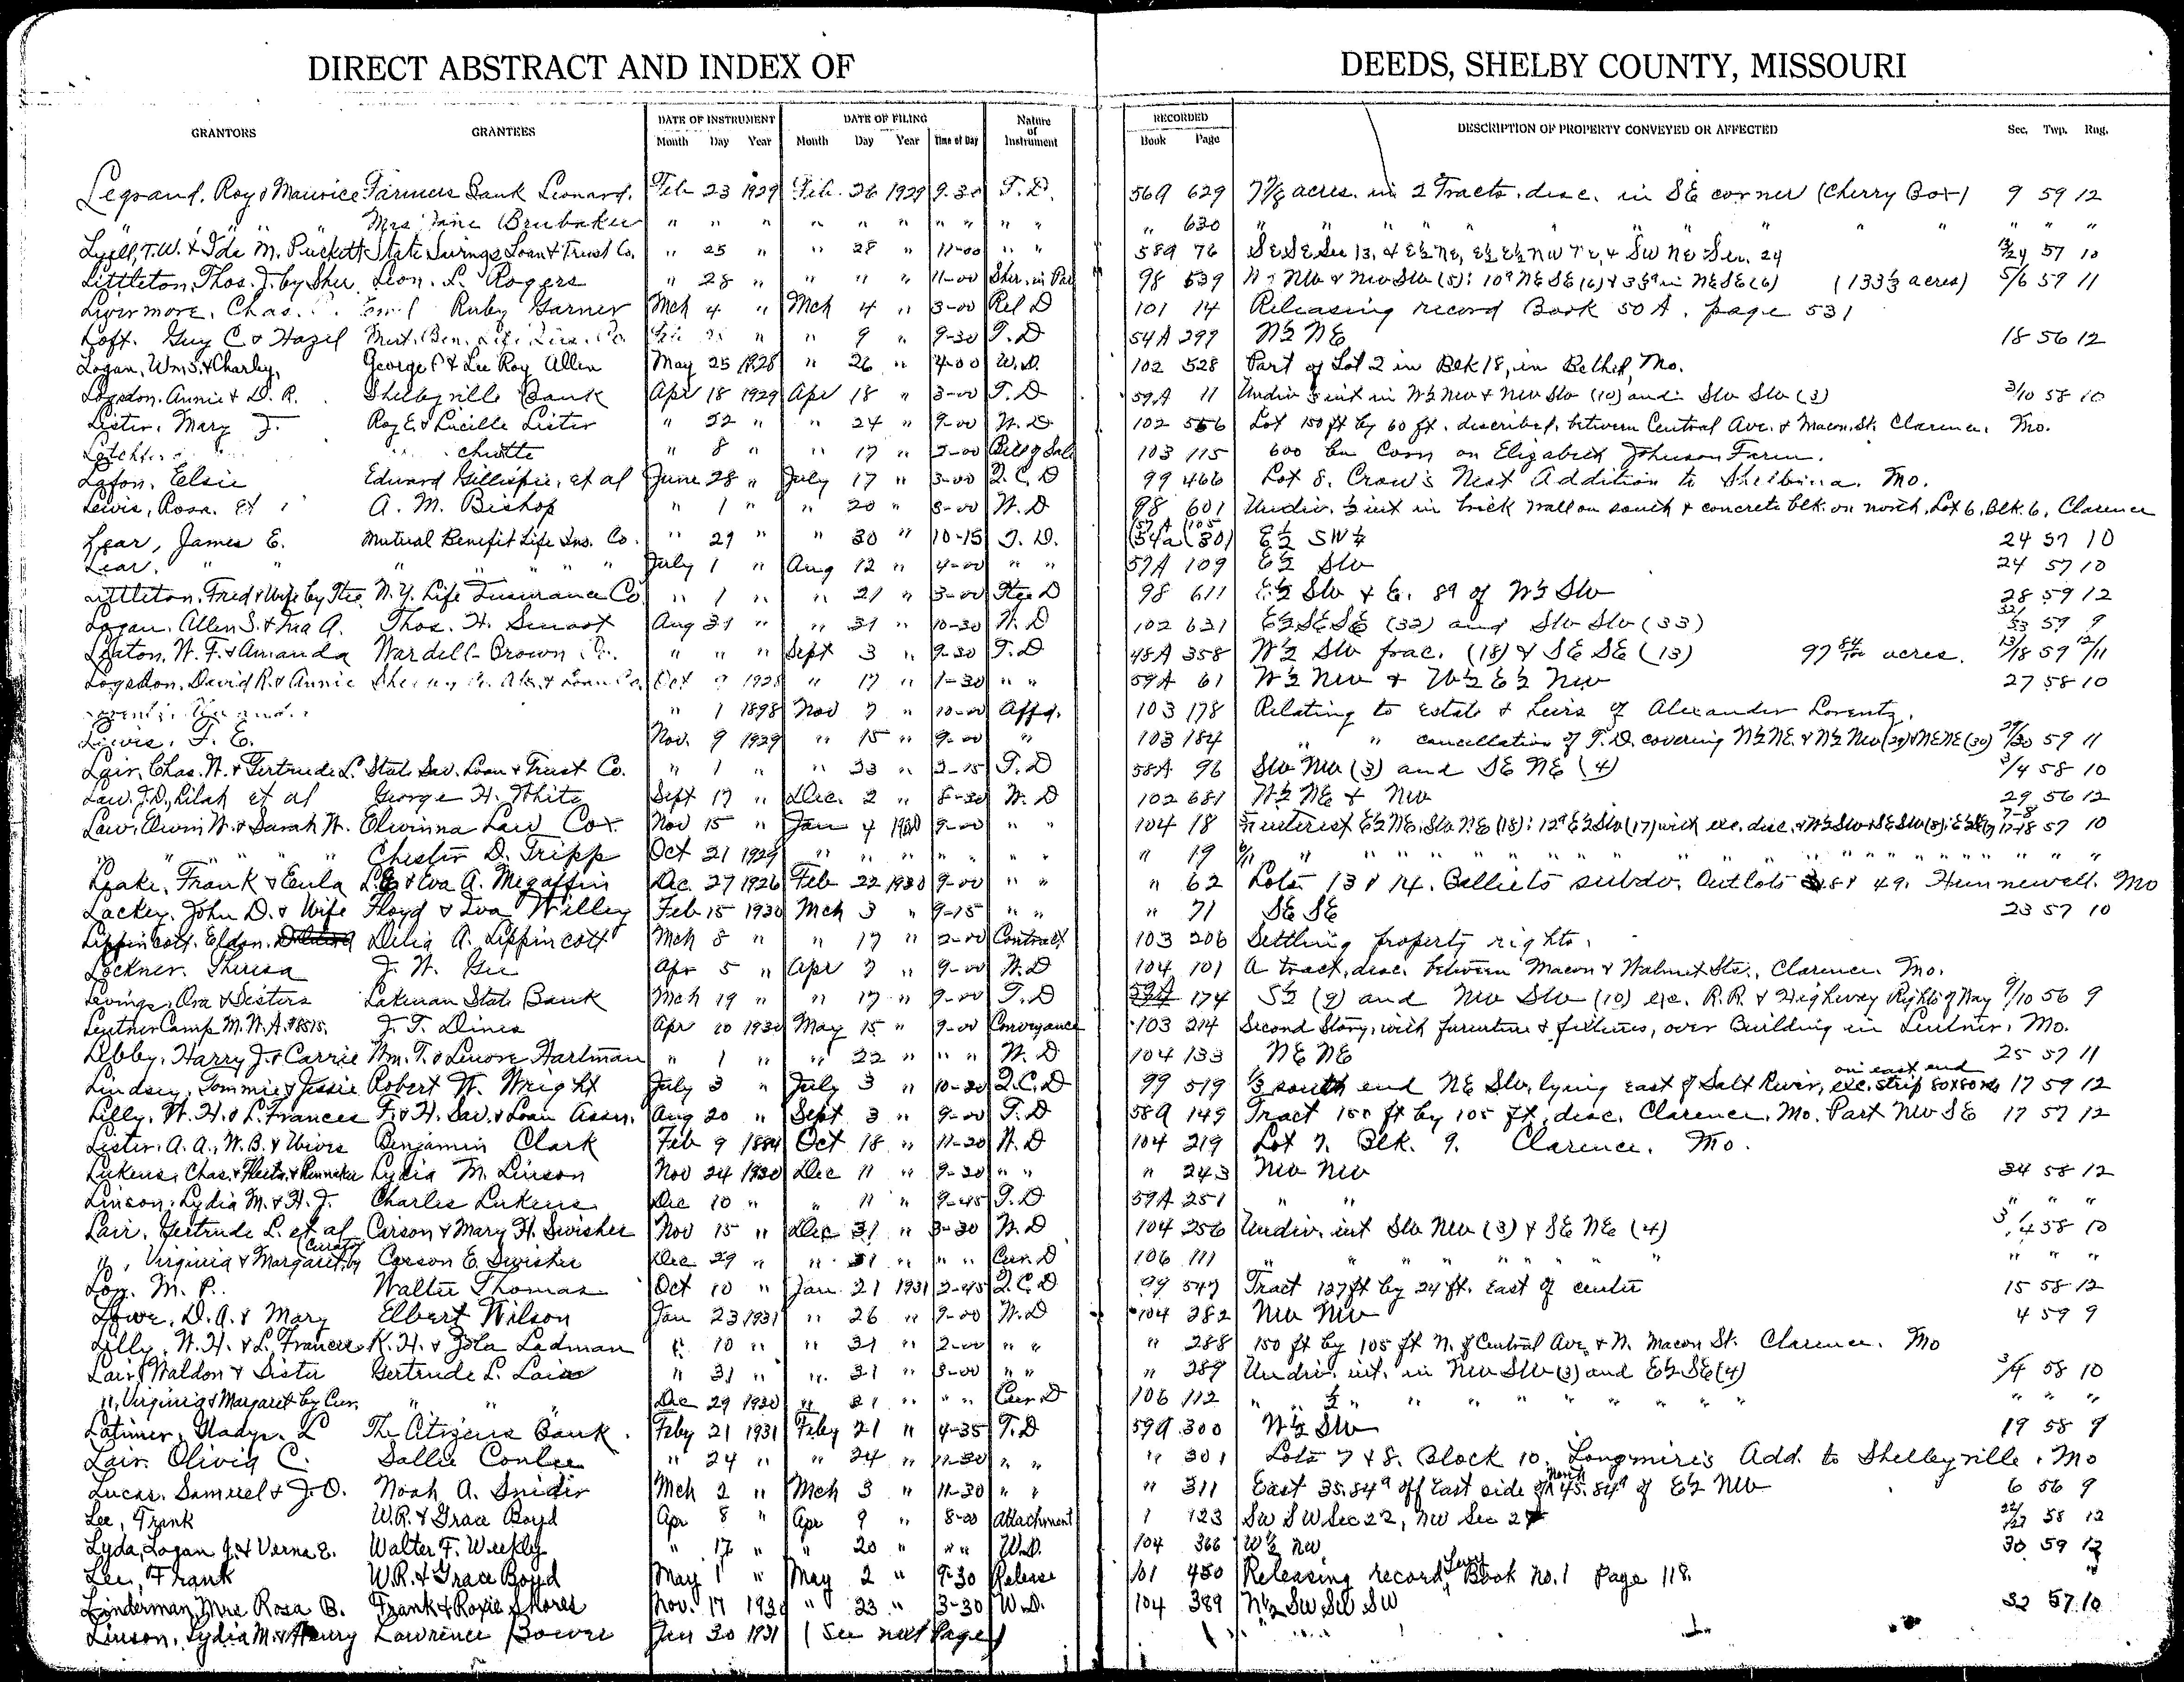 DIRECT ABSTRACT AND INDEX OF DEEDS, SHELBY COUNTY, MISSOURI
GRANTORS GRANTEES DATE OF INSTRUMENT DATE OF FILING Nature of Instrument RECORDED DESCRIPTION OF PROPERTY CONVEYED OR AFFECTED Sec. Twp. Rng.
Month Day Year Month Day Year Time of Day Book Page
Legrand, Roy & Maurice Farmers Bank Leonard. Feb 23 1929 Feb. 26 1929 9-30 T.D. 56A 629 acres in 2 Tracts, desc. in SE corner (Cherry Box) 9 59 12
" " Mrs Jane Brubaker " " " " " " " " " " 630 " " " " " " " " "
Lyell, T.W. & Ida M. Puckett State Savings Loan & Trust Co. " 25 " " 28 " 11-00 " " 58A 76 SE SE Sec 13, & E½ NE, E½ SW NE Sec. 24 13/24 57 10
Littleton, Thos. J. by Sher Leon. L. Rogers " 28 " " " " 11-00 Sher. in Par 98 539 NW & NW SW (5); 10a NE SE (6) & in NE SE (6) (133⅓ acres) 5/6 59 11
Livermore, Chas. Ruby Garner Mch 4 " Mch 4 " 3-00 Rel D 101 14 Releasing record Book 50A, page 531
Loft. Guy C & Hazel Mut. Ben. Life Ins. Co. " 9 " 9-30 T.D 54A 299 N½ NE 18 56 12
Logan, Wm S. & Charley, George P & Lee Roy Allen May 25 1928 " 26 " 4-00 W.D. 102 528 Part of Lot 2 in Blk 18, in Bethel, Mo.
Logsdon. Annie & D. R. Shelbyville Bank Apr 18 1929 Apr 18 " 3-00 T.D 59A 11 Undiv int in W½ NW & NW SW (10) and SW SW (3) 3/10 58 10
Lister, Mary J. Roy E. & Lucille Lister " 22 " " 24 " 9-00 W.D 102 556 Lot 150 ft by 60 ft. described, between Central Ave. & Macon St. Clarence, Mo.
" 8 " " 17 " Bill of Sale 103 115 600 bu Corn on Elizabeth Johnson Farm.
Lafon. Elsie Edward Gillispie, et al June 28 " July 17 " 3-00 Q.C.D 99 466 Lot 8. Crow's Nest Addition to Shelbina. Mo.
Lewis, Rosa. et A. M. Bishop " 1 " " 20 " 8-00 W.D 98 601 Undiv. ½ int in brick wall on south & concrete blk. on north, Lot 6, Blk. 6, Clarence
Lear, James E. Mutual Benefit Life Ins. Co. " 29 " " 30 " 10-15 T.D. E½ SW¼ 24 57 10
Lear. " " " " " " July 1 " Aug 12 " 4-00 " " 59A 109 E½ SW 24 57 10
Littleton, Fred & Wife by N.Y. Life Insurance Co. " 1 " " 21 " 3-00 Tte. D 98 611 E½ SW & E. 89 of W½ SW 28 59 12
Logan. Allen S. & Iva A. Thos. H. Smoot Aug 31 " " 31 " 10-30 W.D 102 631 E½ SE SE (32) and SW SW (33) 32/33 59 9
Leaton, W. F. & Amanda Wardell Brown Co. " " " Sept 3 " 9-30 T.D 48A 358 W½ SW frac. (18) & SE SE (13) 97 acres. 13/18 59 12/11
Logsdon, David R. & Annie Oct 1928 " 17 " 1-30 " " 59A 61 W½ NW & W½ E½ NW 27 58 10
" 1 1898 Nov 7 " 10-00 Affd. 103 178 Relating to Estate & heirs of Alexander Lorentz.
Lewis. F. E. Nov. 9 1929 " 15 " 9-00 " 103 184 " " cancellation of T.D. covering N½ NE. & N½ NW (29) & NE NE (30) 29/30 59 11
Lair, Chas. W. & Gertrude L. State Sav. Loan & Trust Co. " 1 " " 23 " 2-15 T.D 58A 96 SW NW (3) and SE NE (4) 3/4 58 10
Law. J.D., Lilah et al George H. White Sept 17 " Dec. 2 " 8-30 W.D 102 681 W½ NE & NW 29 56 12
Law, Elwin W. & Sarah W. Elwinna Law Cox. Nov 15 " Jan 4 1930 9-00 " " 104 18 interest E½ NE, SW NE (18); 12a E½ SW (17) with exc. desc. & W½ SW & SE SW (8); 7-8 17-18 57 10
" " " " Chester D. Tripp Oct 21 1929 " " " " " " " 19 " " " " " " " " "
Leake, Frank & Eula L.E. & Eva A. Megaffin Dec. 27 1926 Feb 22 1930 9-00 " " " 62 Lots 13 & 14, subdv. Outlots & 49, Hunnewell. Mo
Lackey. John D. & Wife Floyd & Iva Willey Feb 15 1930 Mch 3 " 9-15 " " " 71 SE SE 23 57 10
Lippincott, Eldon. Delia A. Lippincott Mch 8 " " 17 " 2-00 Contract 103 206 Settling property rights.
Lockner. Theresa J. W. Gee Apr 5 " Apr 7 " 9-00 W.D 104 101 A tract, desc. between Macon & Walnut Sts., Clarence. Mo.
Levings, Ora & Sisters Lakenan State Bank Mch 19 " " 17 " 9-00 T.D 59A 174 S½ (9) and NW SW (10) exc. R.R. & Highway Right of Way 9/10 56 9
Leutner Camp M.W.A. #8515. J. T. Dines Apr 20 1930 May 15 " 9-00 Conveyance 103 214 Second Story, with furniture & fixtures, over Building in Lentner, Mo.
Libby, Harry J. & Carrie Wm. T. & Lenore Hartman " 1 " " 22 " " " W.D 104 133 NE NE 25 57 11
Lindsey, Tommie & Jessie Robert W. Wright July 3 " July 3 " 10-30 Q.C.D 99 519 ⅓ south end NE SW, lying east of Salt River, exc. strip on east end 17 59 12
Lilly. W. H. & L. Frances F. & H. Sav. & Loan Assn. Aug 20 " Sept 3 " 9-00 T.D 58A 149 Tract 150 ft by 105 ft, desc. Clarence, Mo. Part NW SE 17 57 12
Lister, A. A., W. B. & Wives Benjamin Clark Feb 9 1884 Oct 18 " 11-20 W.D 104 219 Lot 7. Blk. 9. Clarence. Mo.
Lukens, Chas. & Lydia M. Linson Nov 24 1930 Dec 11 " 9-30 " " " 243 NW NW 34 58 12
Linson, Lydia M. & H. J. Charles Lukens Dec 10 " " 11 " 9-45 T.D 59A 251 " " " " "
Lair. Gertrude L. et al Carson & Mary H. Swisher Nov 15 " Dec 31 " 3-30 W.D 104 256 Undiv. int SW NW (3) & SE NE (4) 3/4 58 10
", Virginia & Margaret, by (Curator) Carson E. Swisher Dec 29 " " 31 " " " Cur. D 106 111 " " " " " " " " "
Loy. M. P. Walter Thomas Oct 10 " Jan. 21 1931 2-45 Q.C.D 99 547 Tract 127 ft by 24 ft. East of center 15 58 12
Lowe. D. A. & Mary Elbert Wilson Jan 23 1931 " 26 " 9-00 W.D 104 282 NW NW 4 59 9
Lilly. W. H. & L. Frances K. H. & Zola Ladman " 10 " " 31 " 2-00 " " " 288 150 ft by 105 ft N. of Central Ave. & N. Macon St. Clarence. Mo
Lair, Waldon & Sister Gertrude L. Lair " 31 " " 31 " 3-00 " " " 289 Undiv. int. in NW SW (3) and E½ SE (4) 3/4 58 10
", Virginia & Margaret by Cur. " " Dec 29 1930 " 31 " " " Cur. D 106 112 " " ½ " " " " " " " "
Latimer, Gladys. L The Citizens Bank. Feby 21 1931 Feby 21 " 4-35 T.D 59A 300 W½ SW 19 58 9
Lair. Olivia C. Sallie Conlee " 24 " " 24 " 11-30 " " " 301 Lots 7 & 8. Block 10. Longmire's Add. to Shelbyville. Mo
Lucas. Samuel & J.O. Noah A. Snider Mch 2 " Mch 3 " 11-30 " " " 311 East 35.84a off East side of North 45.84a of E½ NW 6 56 9
Lee, Frank W.R. & Grace Boyd Apr 8 " Apr 9 " 8-00 Attachment 1 123 SW SW Sec 22, NW Sec 27 22/27 58 12
Lyda, Logan J. & Verna E. Walter F. Weekly " 17 " " 20 " " " W.D. 104 366 W½ NW 30 59 12
Lee, Frank W.R. & Grace Boyd May 1 " May 2 " 9-30 Release 101 480 Releasing record Levy Book no. 1 Page 118.
Linderman, Mrs Rosa B. Frank & Roxie Shores Nov. 17 1930 " 23 " 3-30 W.D. 104 389 N½ SW SW SW 32 57 10
Linson, Lydia M. & Henry Lawrence Bower Jan 30 1931 (See next Page)